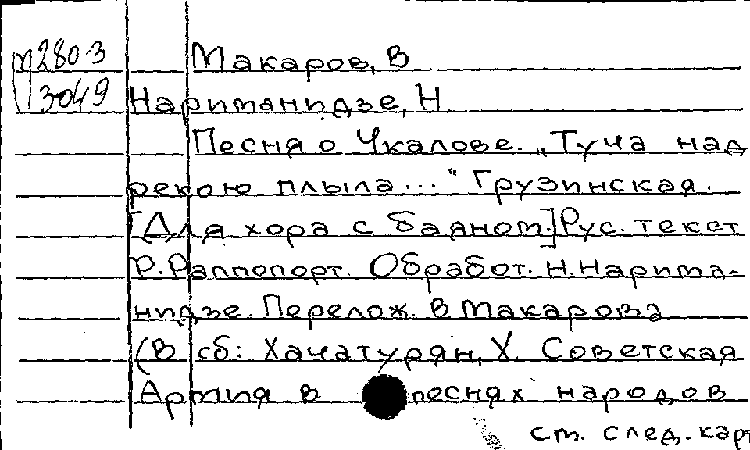 м2803 Макаров, В
3049 Нариманидзе, Н.
Песня о Чкалове. „Туча над
рекою плыла..." Грузинская.
[Для хора с баяном.] Рус. текст
Р. Раппопорт. Обработ. Н. Нарима-
нидзе. Перелож. В Макарова
(В сб: Хачатурян, Х. Советская
Армия в песнях народов
см. след. карт